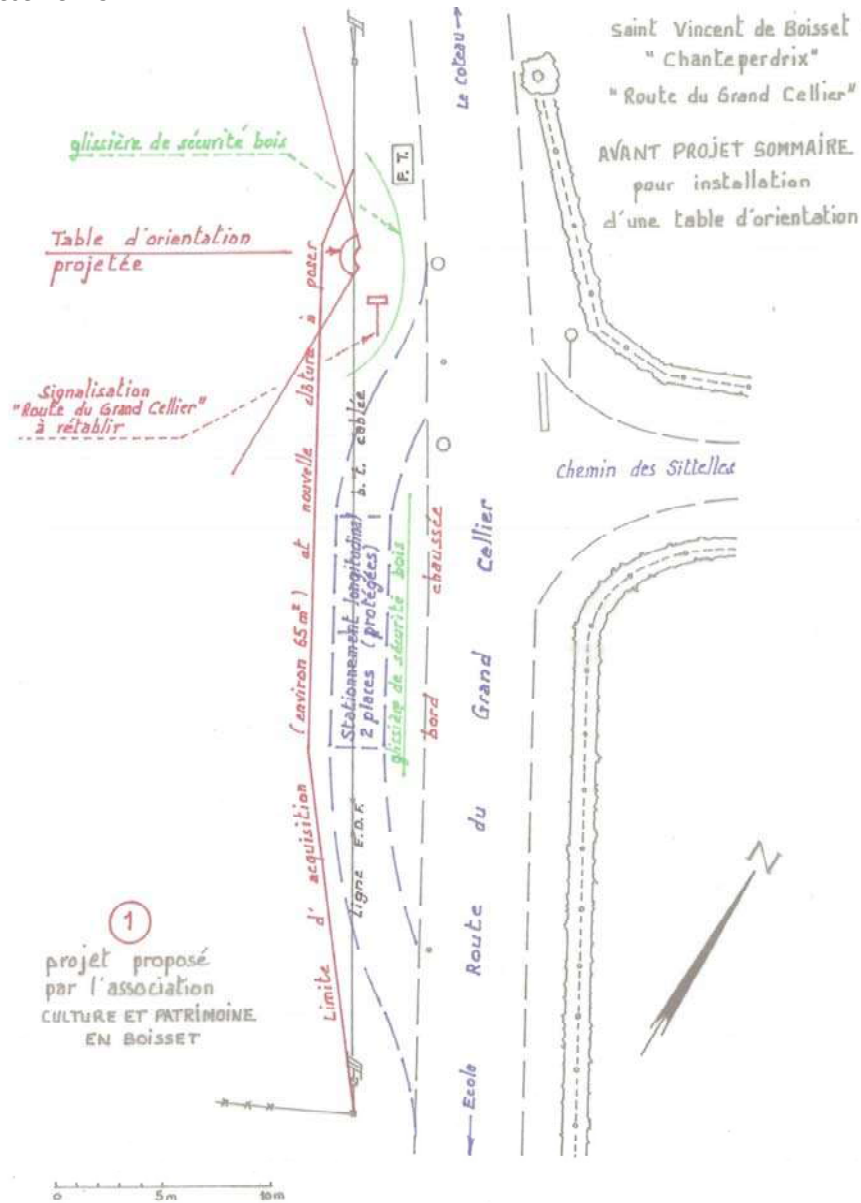 Saint Vincent de Boisset
"Chanteperdrix"
"Route du Grand Cellier"
AVANT PROJET SOMMAIRE
pour installation
d'une table d'orientation
Le Coteau →
glissière de sécurité bois
F.T.
Table d'orientation
projetée
Signalisation
"Route du Grand Cellier"
à rétablir
Chemin des Sittelles
Limite d'acquisition (environ 65 m²) et nouvelle clôture à poser
Ligne E.D.F. b.t. cablée
Stationnement longitudinal
2 places (protégées)
glissière de sécurité bois
bord chaussée
Route du Grand Cellier
← Ecole
N
1
projet proposé
par l'association
CULTURE ET PATRIMOINE
EN BOISSET
0 5m 10m